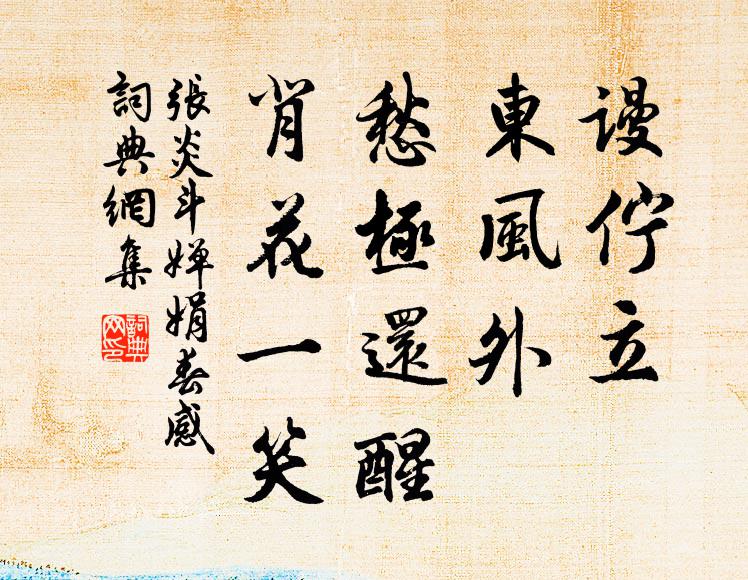 谩佇立
東風外
愁極還醒
背花一笑
張炎斗嬋娟春感
詞典網集
詞典网印